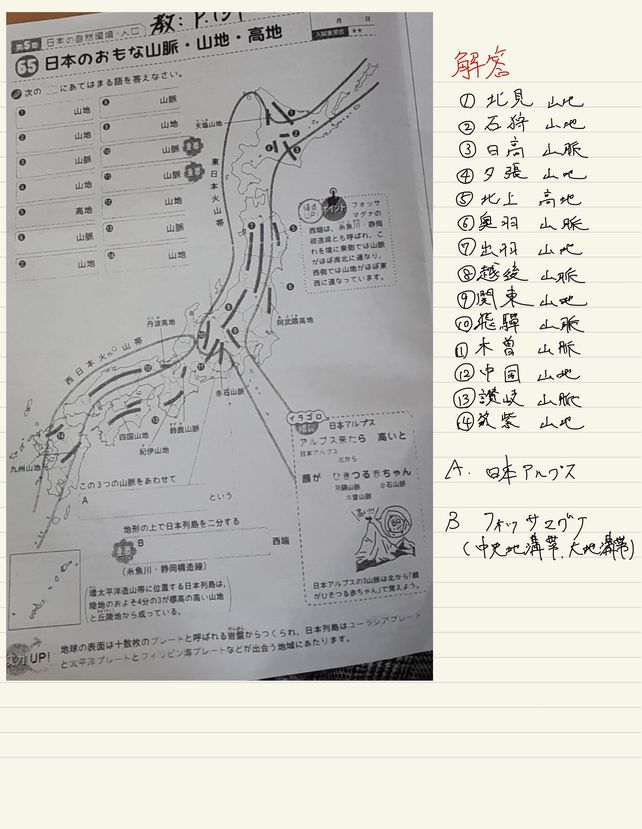 教:P.151
第5章 日本の自然環境・人口
月 日
65 日本のおもな山脈・山地・高地
入試重要度 ★★
次の にあてはまる語を答えなさい。
① 山地
② 山地
③ 山脈
④ 山地
⑤ 高地
⑥ 山脈
⑦ 山地
⑧ 山脈
⑨ 山地
⑩ 山脈 重要
⑪ 山脈 重要
⑫ 山地
⑬ 山脈
⑭ 山地
天塩山地
東日本火山帯
ポイント
フォッサ
マグナの
西端は、糸魚川・静岡
構造線とも呼ばれ、こ
れを境に東側では山脈
がほぼ南北に連なり、
西側では山地がほぼ東
西に連なっています。
丹波高地
阿武隈高地
西日本火山帯
赤石山脈
鈴鹿山脈
四国山地
紀伊山地
九州山地
この3つの山脈をあわせて
A という
地形の上で日本列島を二分する
重要 B 西端
(糸魚川・静岡構造線)
環太平洋造山帯に位置する日本列島は、
陸地のおよそ4分の3が標高の高い山地
と丘陵地から成っている。
イラゴロ
日本アルプス
アルプス来たら 高いと
日本アルプス
北から
顔が ひきつる赤ちゃん
飛驒山脈 赤石山脈
木曽山脈
高い!!
日本アルプスの3山脈は北から「顔
がひきつる赤ちゃん」で覚えよう。
実力UP!
地球の表面は十数枚のプレートと呼ばれる岩盤からつくられ、日本列島はユーラシアプレート
と太平洋プレートとフィリピン海プレートなどが出会う地域にあたります。
解答
① 北見 山地
② 石狩 山地
③ 日高 山脈
④ 夕張 山地
⑤ 北上 高地
⑥ 奥羽 山脈
⑦ 出羽 山地
⑧ 越後 山脈
⑨ 関東 山地
⑩ 飛驒 山脈
⑪ 木曽 山脈
⑫ 中国 山地
⑬ 讃岐 山脈
⑭ 筑紫 山地
A. 日本アルプス
B フォッサマグナ
(中央地溝帯、大地溝帯)